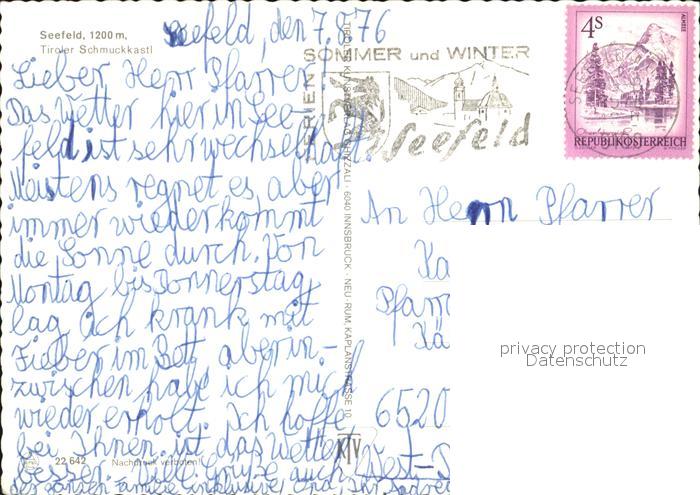 Seefeld, 1200 m,
Tiroler Schmuckkastl
Seefeld, den 7.8.76
Lieber Herr Pfarrer
Das Wetter hier in See-
feld ist sehr wechselhaft.
Meistens regnet es aber
immer wieder kommt
die Sonne durch. Von
Montag bis Donnerstag
lag ich krank mit
Fieber im Bett aber in-
zwischen habe ich mich
wieder erholt. Ich hoffe
bei Ihnen ist das Wetter
besser. Viele Grüße auch
des ganzen Familie inklusive
22 642 Nachdruck verboten!
6040 INNSBRUCK - NEU-RUM, KAPLANSTRASSE 10
KTV
FERIEN SOMMER und WINTER
Seefeld
4 S
ALMSEE
REPUBLIK ÖSTERREICH
An Herrn Pfarrer
Ka
Pfarr
Kä
6520
West-
privacy protection
Datenschutz